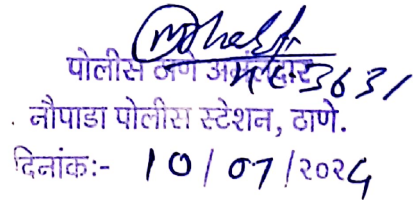 पोलीस ठाणे अमंलदार
3631
नौपाडा पोलीस स्टेशन, ठाणे.
दिनांक:- 10/07/२०२4